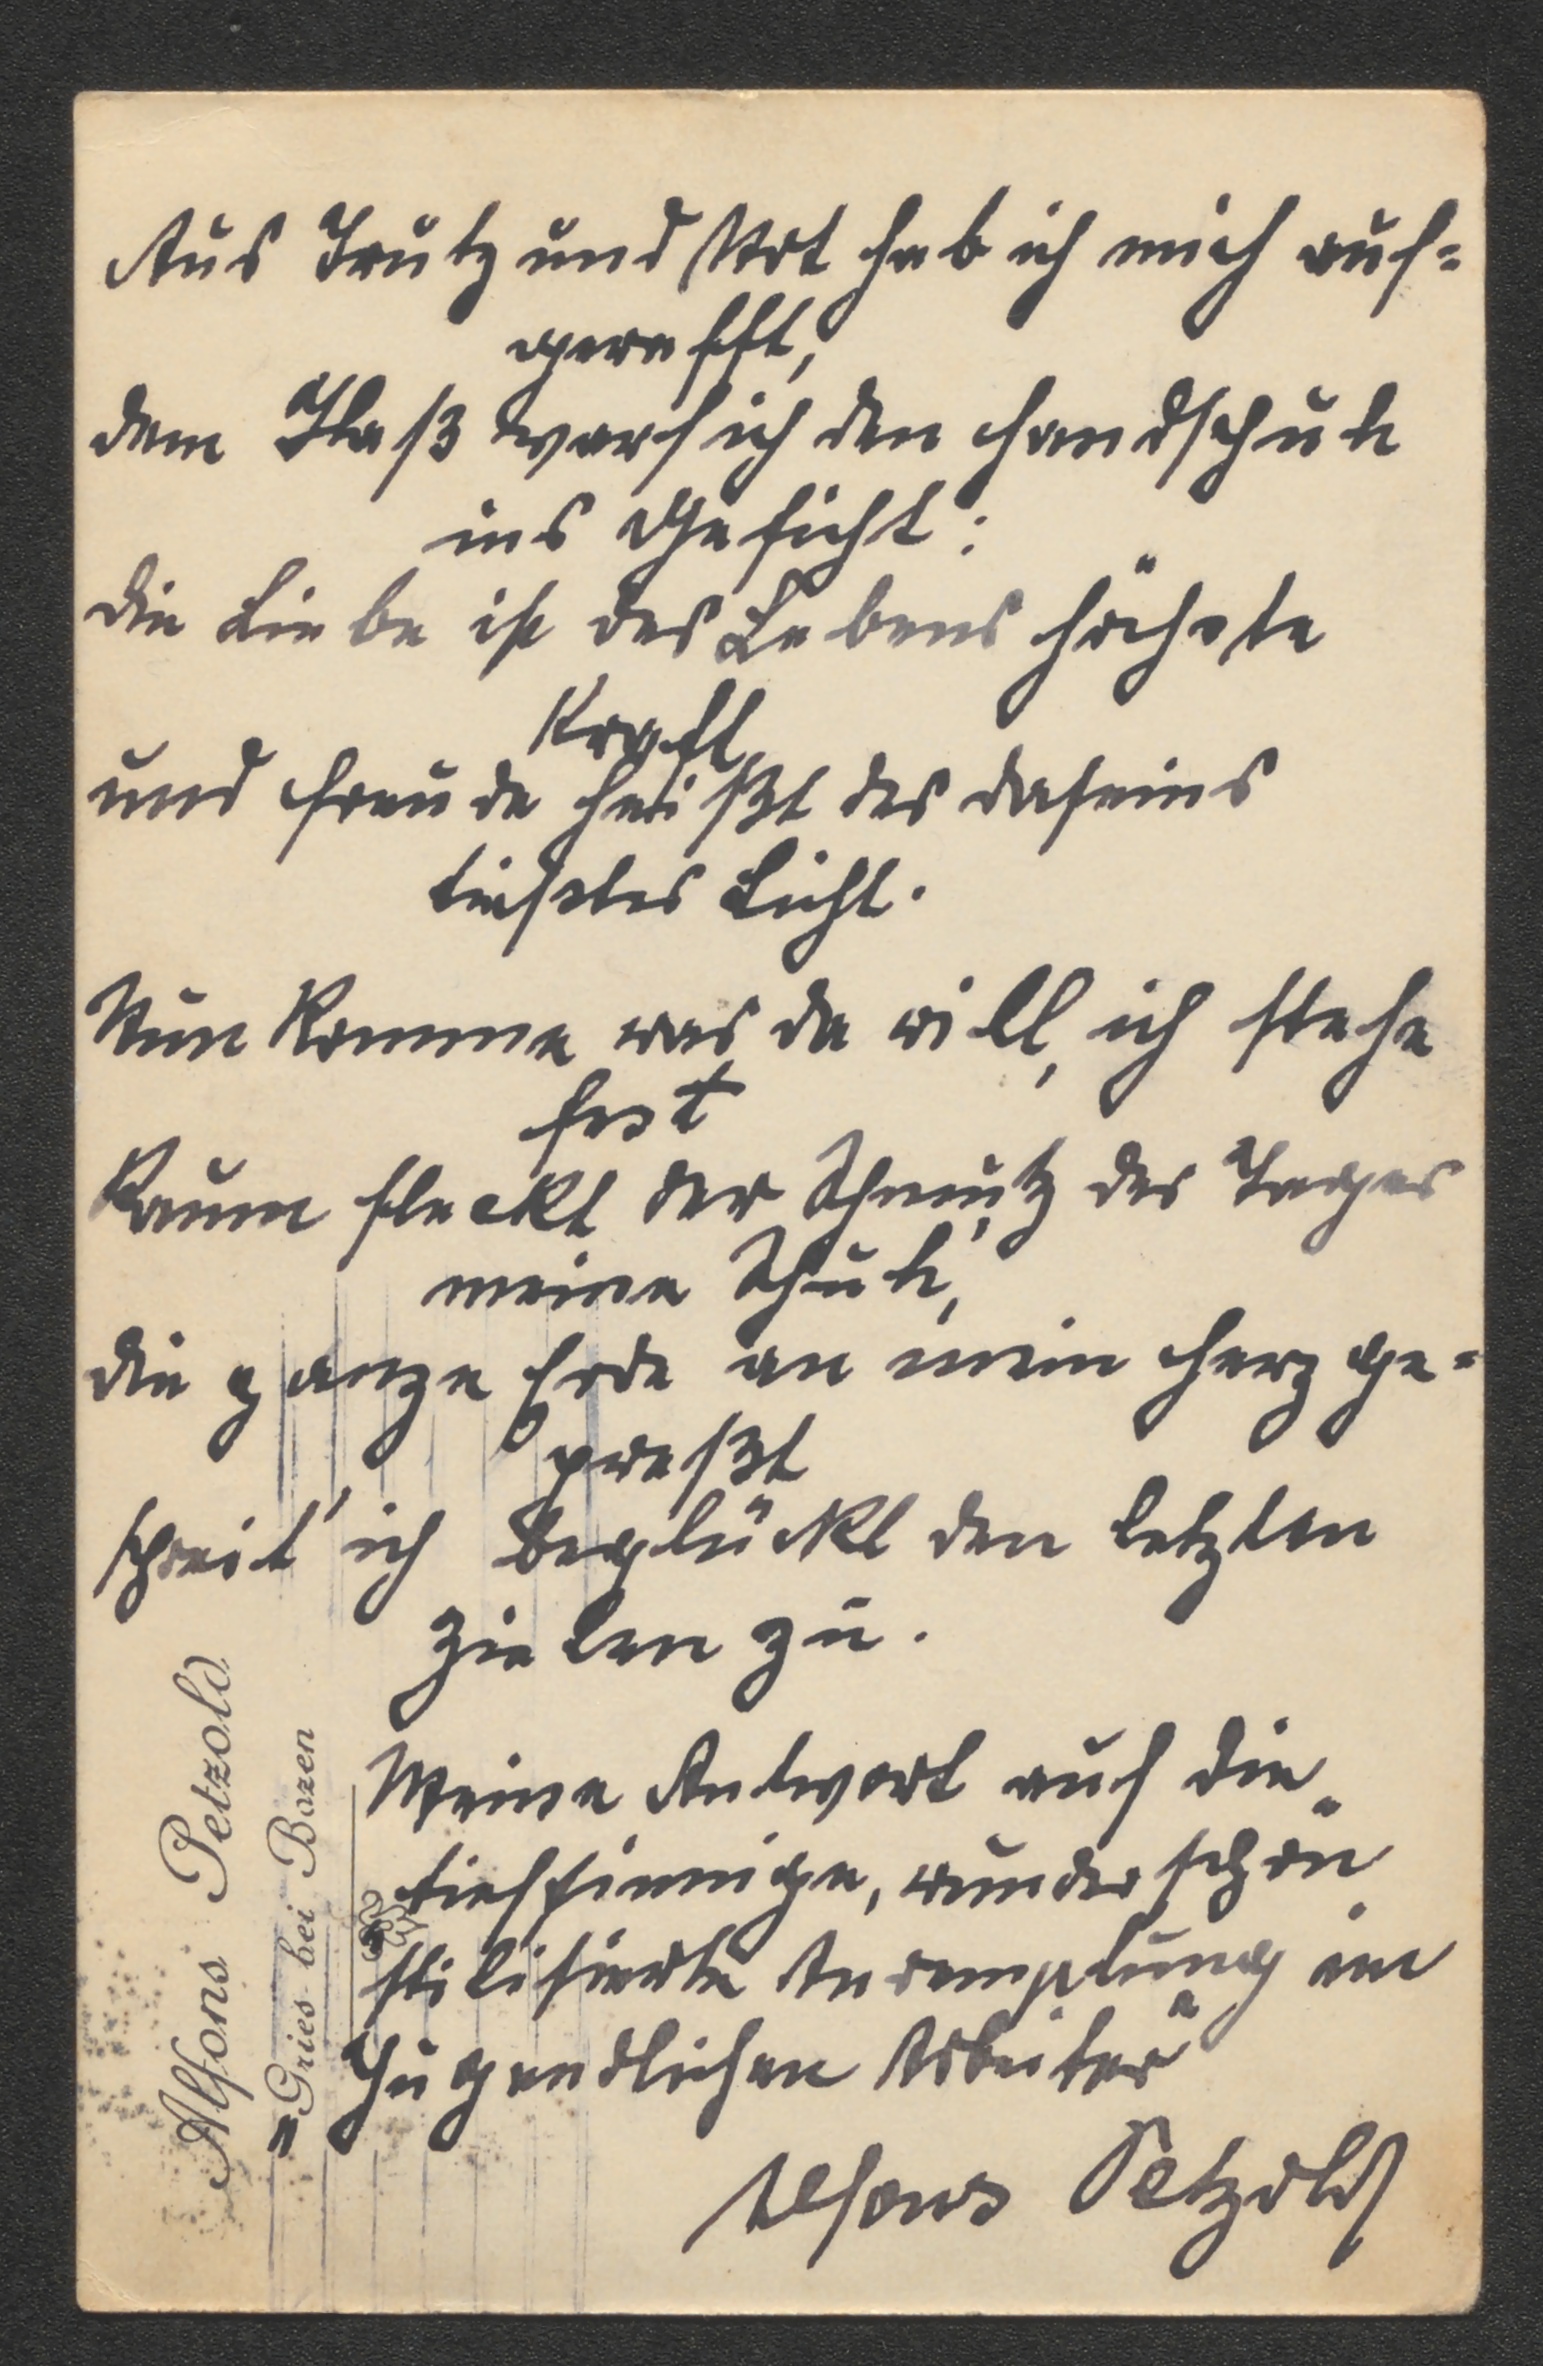 Aus Trutz und Not hab ich mich auf-
gerafft,
dem Haß warf ich den Handschuh
ins Gesicht:
die Liebe ist des Lebens höchste
Kraft
und Freude heißt des Daseins
tiefstes Licht.
Nun komme was da will, ich stehe
fest
kaum fleckt der Schmutz des Tages
meine Schuh,
die ganze Erde an mein Herz ge-
preßt
schreit' ich beglückt den letzten
Zielen zu.
Meine Antwort auf die
tiefsinnige, wunderschön
stilisierte Anremplung im
„Jugendlichen Arbeiter"
Alfons Petzold
Alfons Petzold
Gries bei Bozen